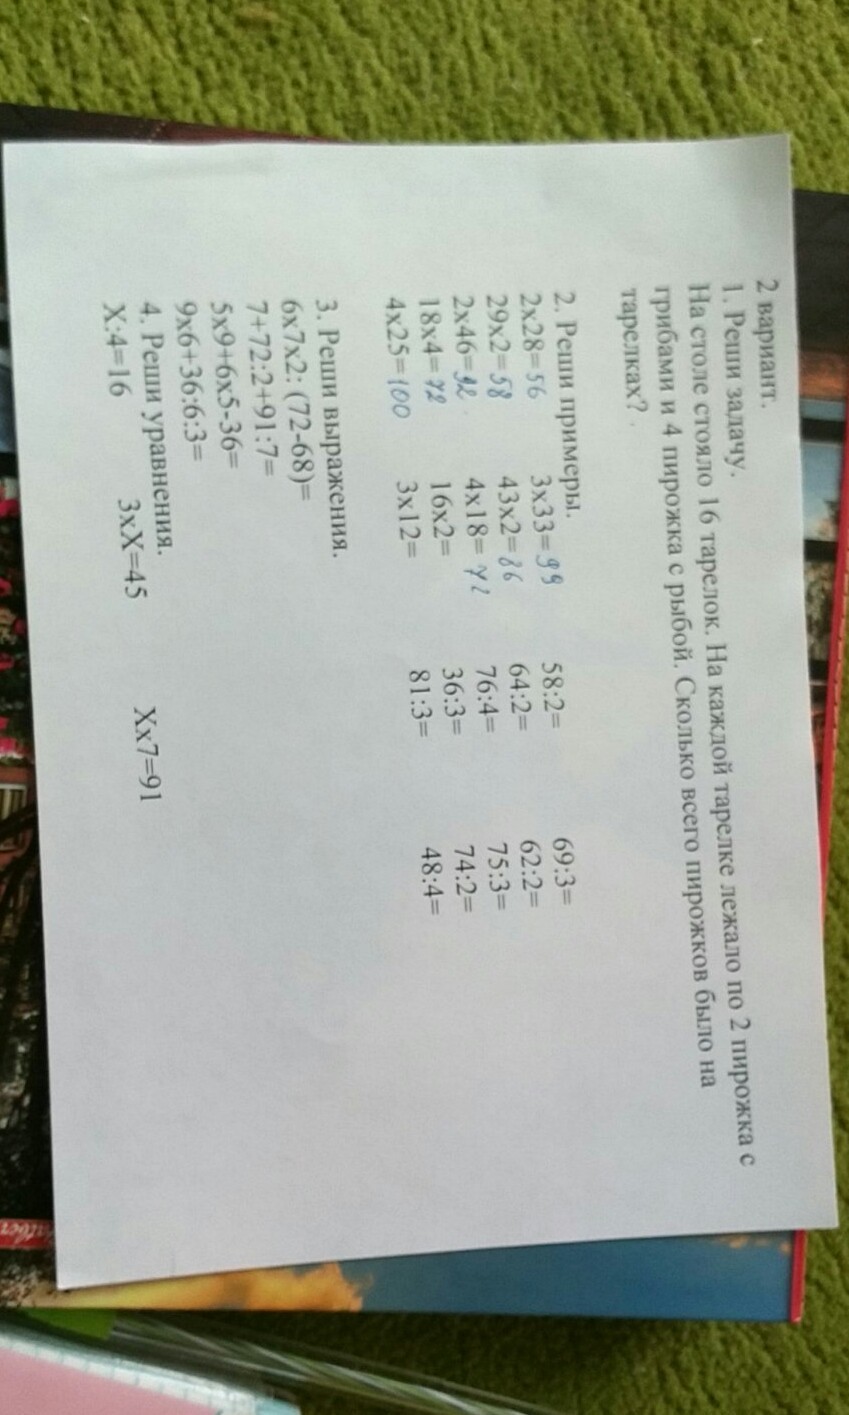 2 вариант.
1. Реши задачу.
На столе стояло 16 тарелок. На каждой тарелке лежало по 2 пирожка с
грибами и 4 пирожка с рыбой. Сколько всего пирожков было на
тарелках?
2. Реши примеры.
2x28=56 3x33=99 58:2= 69:3=
29x2=58 43x2=86 64:2= 62:2=
2x46=92 4x18=72 76:4= 75:3=
18x4=72 16x2= 36:3= 74:2=
4x25=100 3x12= 81:3= 48:4=
3. Реши выражения.
6x7x2: (72-68)=
7+72:2+91:7=
5x9+6x5-36=
9x6+36:6:3=
4. Реши уравнения.
X:4=16 3xX=45 Xx7=91